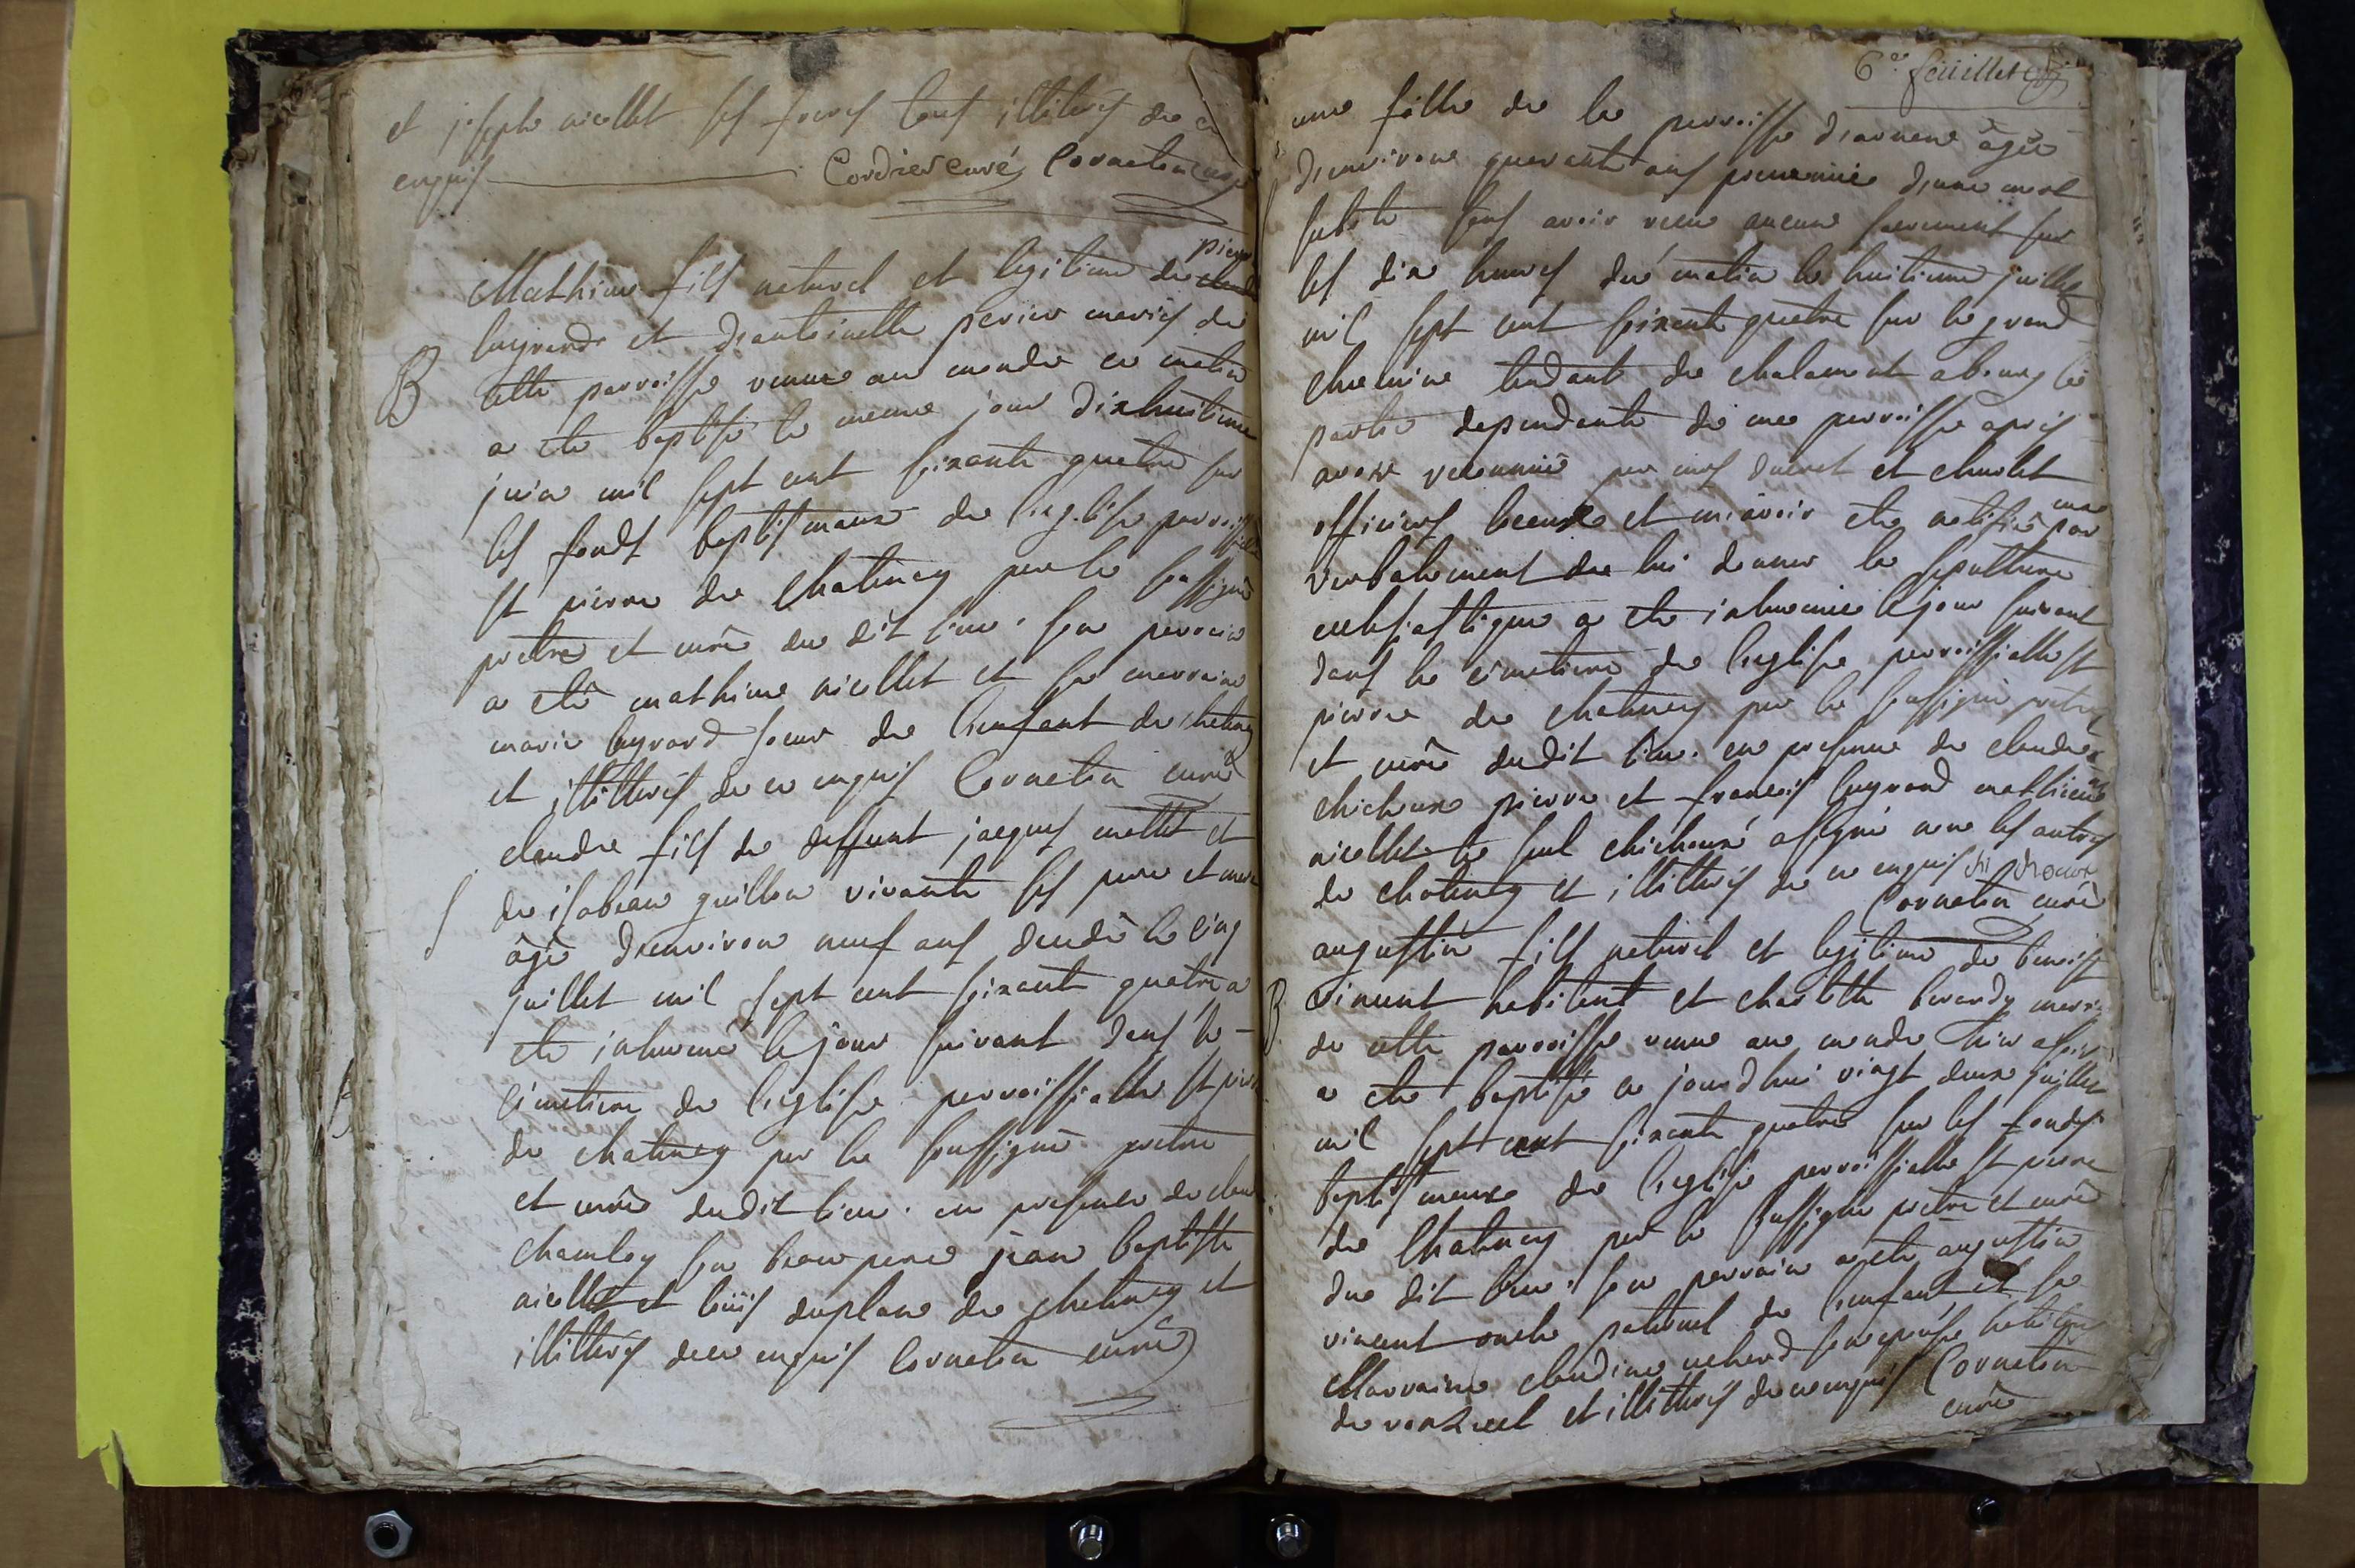 et josepte nicollet ses soeurs tous illitérés de ce
enquis Cordier curé Cornaton curé
pierre
Mathieu fils naturel et legitime de claude
lugrand et d'antoinette perier mariés de
B cette parroisse venue au monde ce matin
a ete baptisé le meme jour dixhuitieme
juin mil sept cent soixante quatre sur
les fonds baptismaux de l'eglise parroissialle
st pierre de Chatenay par le soussigné
pretre et curé du dit lieu. son parrain
a été mathieu nicollet et sa marraine
marie lugrand soeur de l'enfant de chatenay
et illittérés de ce enquis Cornaton curé
claude fils de deffunt jacques mallet et
S de isabeau guillon vivante ses pere et mere
âgé d'environ neuf ans decedé le cinq
juillet mil sept cent soixante quatre a
ete inhumé le jour suivant dans le
cimetiere de l'eglise parroissialle st pierre
de chatenay par le soussigné pretre
et curé dudit lieu. en presence de claude
chamley son beau pere jean baptiste
nicollet et louis duplan de chatenay et
illittérés de ce enquis Cornaton curé
6e feüillet
une fille de la parroisse d'
d'environ quarante ans d'une mort
subite sans avoir reçu aucun sacrement sur
les dix heures du matin le huitieme juillet
mil sept cent soixante quatre sur le grand
chemin tendant de chalamont a bourg la
partie dependante de ma parroisse apres
avoir par mrs ducret et chevolet
officiers locaux et m'avoir ete notifié par
verbalement de lui donner la sepulture
eclesiastique a ete inhumée le jour suivant
dans le cimetiere de l'eglise parroissialle st
pierre de chatenay par le soussigné pretre
et curé dudit lieu. en presence de claude
chicheux pierre et francois lugrand mathieu
nicollet le seul chicheux a signé non les autres
de chatenay et illittérés de ce enquis chicheux
Cornaton curé
augustin fils naturel et legitime de benoist
B vincent habitant et charlotte berardy mariés
de cette parroisse venue au monde hier
a ete baptisé ce jourdhui vingt deux juillet
mil sept cent soixante quatre sur les fonds
baptismaux de l'eglise parroissialle st pierre
de Chatenay par le soussigné pretre et curé
du dit lieu. son parrain a ete augustin
vincent oncle paternel de l'enfant et sa
Marraine claudine son epouse
de et illittérés de ce enquis Cornaton
curé